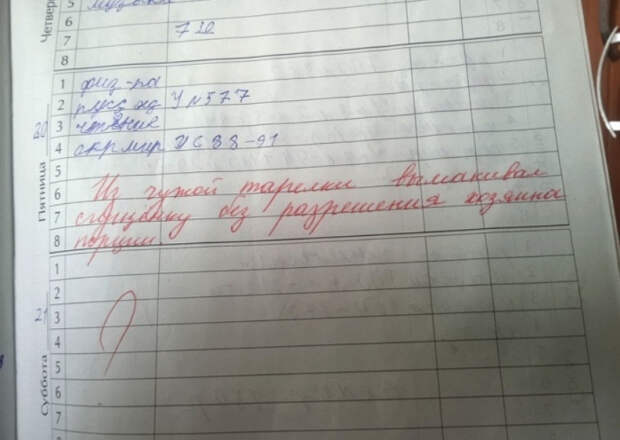 Четверг
5
6
7
720
8
20
Пятница
1 физ-ра
2 русс яз У N577
3 чтение
4 окр мир У С 88-91
5
6 Из чужой тарелки вымакивал
7 сгущенку без разрешения хозяина
8 порции.
21
Суббота
1
2
3
4
5
6
7